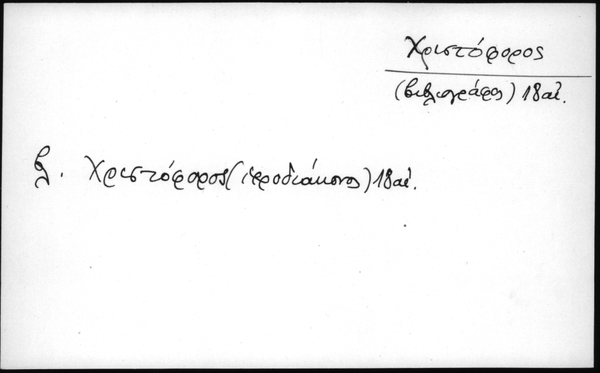 Χριστόφορος
(βιβλιογράφος) 18 αἰ.
βλ. Χριστόφορος (ἱεροδιάκονος) 18 αἰ.